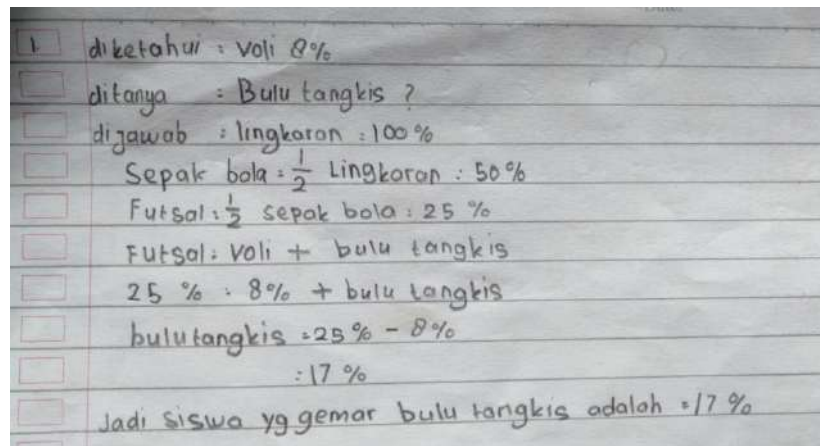 1. diketahui : Voli 8%
ditanya : Bulu tangkis ?
dijawab : lingkaran : 100%
Sepak bola = 1/2 Lingkaran : 50%
Futsal : 1/2 sepak bola : 25 %
Futsal : Voli + bulu tangkis
25 % : 8% + bulu tangkis
bulutangkis = 25% - 8%
: 17 %
Jadi siswa yg gemar bulu tangkis adalah = 17 %